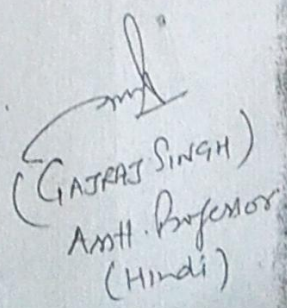 (GAJRAJ SINGH)
Asstt. Professor
(Hindi)